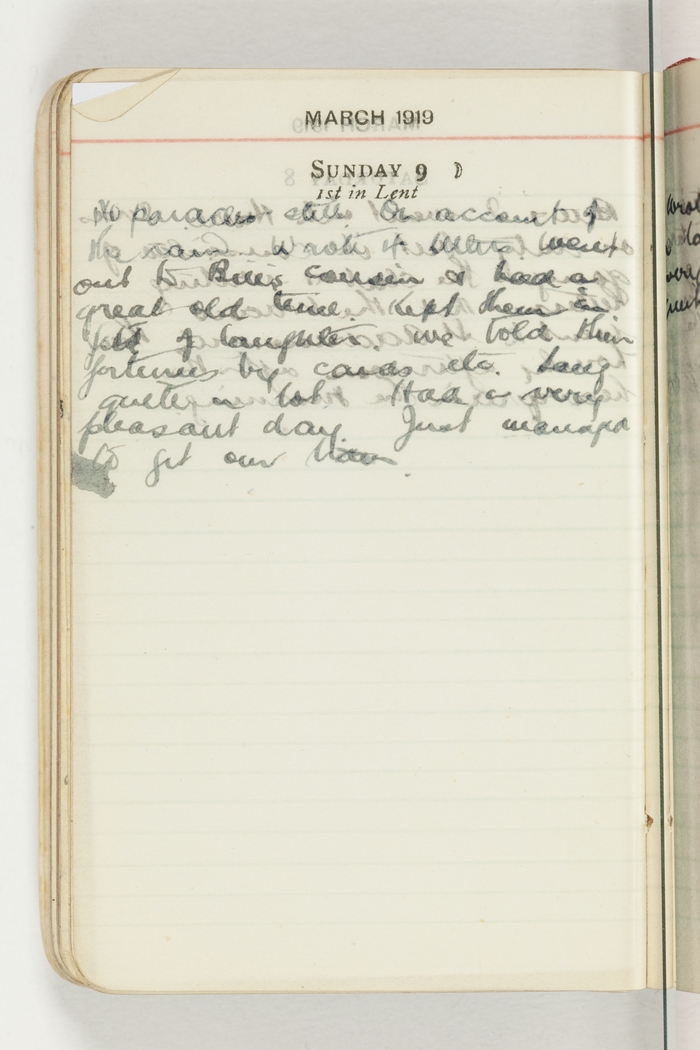 MARCH 1919
SUNDAY 9
1st in Lent
No parades still on account of
the rain. wrote letters. went
out to Bills cousin & had a
great old time. Kept them in
fits of laughter. we told their
fortunes by cards etc. Sang
quite a lot. Had a very
pleasant day. Just managed
to get our